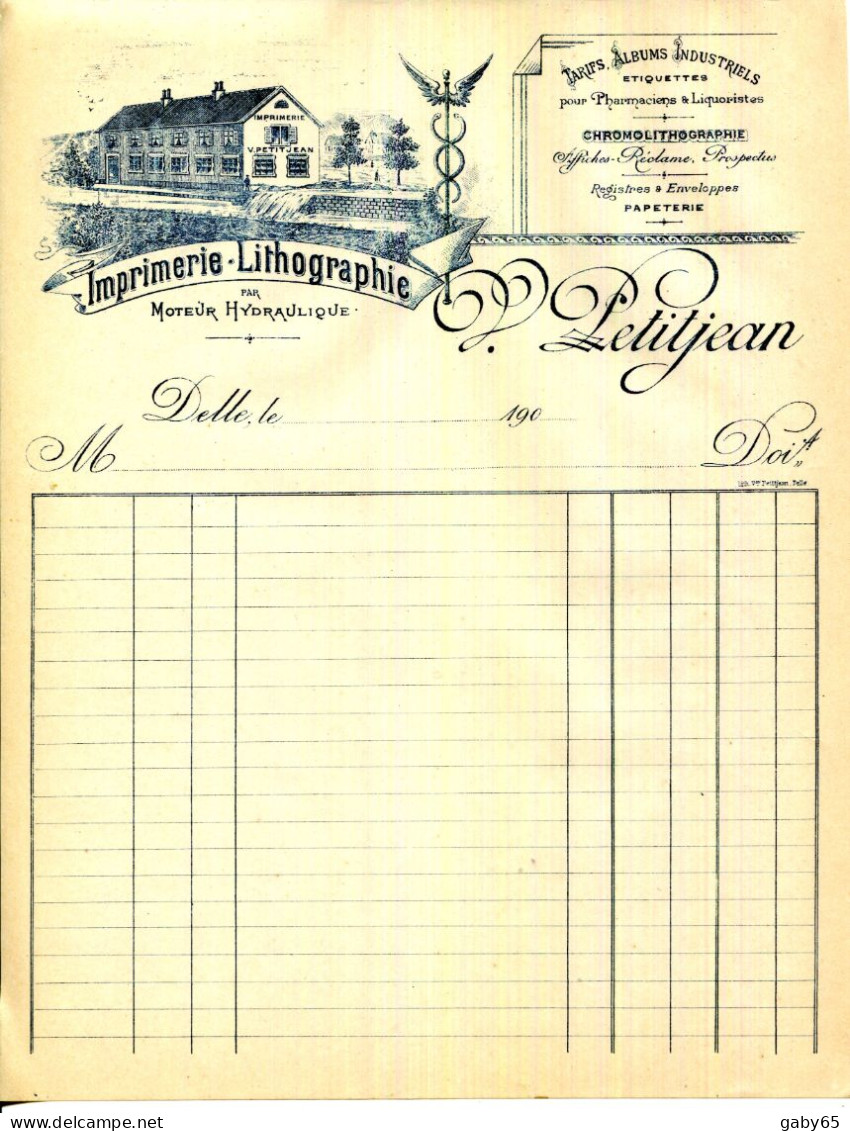 IMPRIMERIE
V. PETITJEAN
Imprimerie-Lithographie
PAR
MOTEUR HYDRAULIQUE
TARIFS, ALBUMS INDUSTRIELS
ETIQUETTES
pour Pharmaciens & Liquoristes
CHROMOLITHOGRAPHIE
Affiches-Réclame, Prospectus
Registres & Enveloppes
PAPETERIE
V. Petitjean
Delle, le 190
M Doit
Lith. Vor Petitjean, Delle
delcampe.net
gaby65